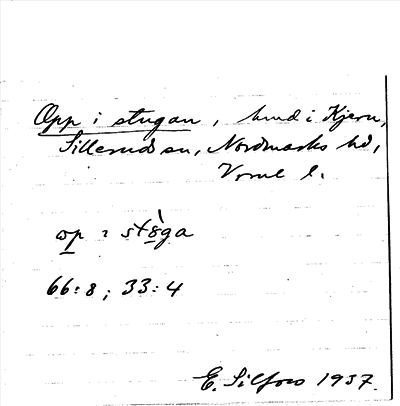 Opp i stugan, hmd i Kjern,
Sillerud sn, Nordmarks hd,
Vrml l.
op ɿ stöga
66:8; 33:4
E. Silfors 1937.